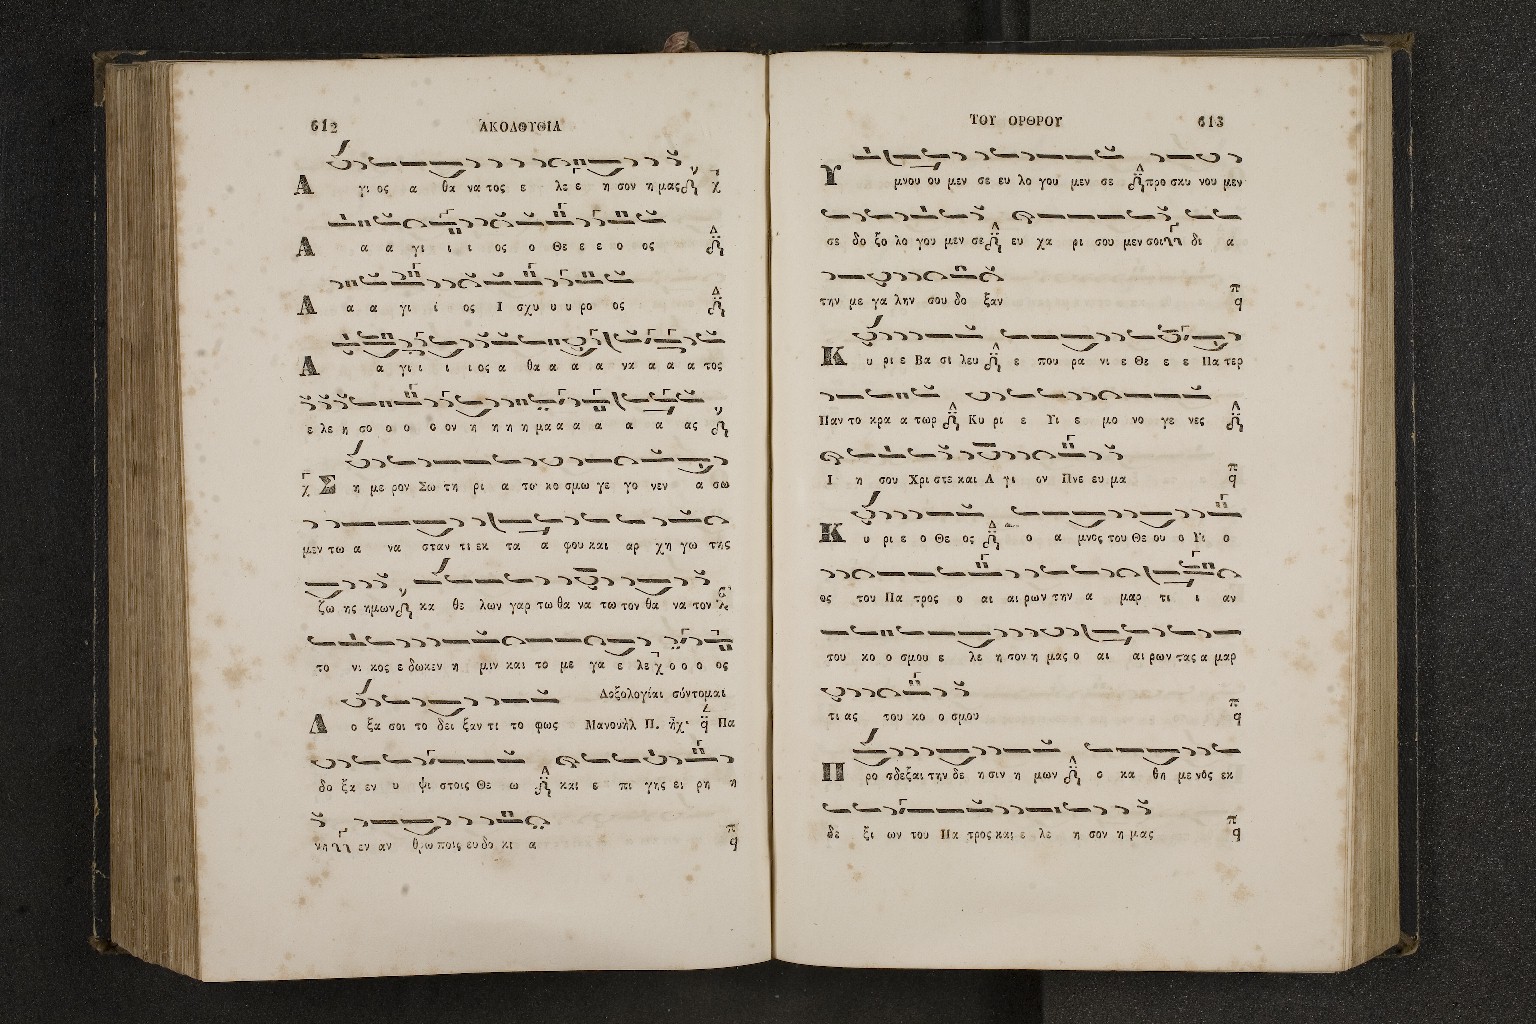 612 ΑΚΟΛΟΥΘΙΑ
Α γι ος α θα να τος ε λε ε η σον η μας
Α α α γι ι ι ος ο Θε ε ε ο ος
Α α α γι ι ος Ι σχυ υ υ ρο ος
Α α γι ι ι ι ος α θα α α α να α α α τος
ε λε η σο ο ο ο ον η η η η μα α α α α α ας
Σ η με ρον Σω τη ρι α τω κο σμω γε γο νεν α σω
μεν τω α να σταν τι εκ τα α φου και αρ χη γω της
ζω ης ημων κα θε λων γαρ τω θα να τω τον θα να τον
το νι κος ε δωκεν η μιν και το με γα ε λε ο ο ο ος
Δοξολογίαι σύντομαι
Δ ο ξα σοι το δει ξαν τι το φως Μανουὴλ Π. ἦχ. Πα
δο ξα εν υ ψι στοις Θε ω και ε πι γης ει ρη η
νη εν αν θρω ποις ευ δο κι α
ΤΟΥ ΟΡΘΡΟΥ 613
Υ μνου ου μεν σε ευ λο γου μεν σε προ σκυ νου μεν
σε δο ξο λο γου μεν σε ευ χα ρι σου μεν σοι δι α
την με γα λην σου δο ξαν
Κ υ ρι ε Βα σι λευ ε που ρα νι ε Θε ε ε Πα τερ
Παν το κρα α τωρ Κυ ρι ε Υι ε μο νο γε νες
Ι η σου Χρι στε και Α γι ον Πνε ευ μα
Κ υ ρι ε ο Θε ος ο α μνος του Θε ου ο Υι ο
ος του Πα τρος ο αι αι ρων την α μαρ τι ι αν
του κο ο σμου ε λε η σον η μας ο αι αι ρων τας α μαρ
τι ας του κο ο σμου
Π ρο σδεξαι την δε η σιν η μων ο κα θη με νος εκ
δε ξι ων του Πα τρος και ε λε η σον η μας